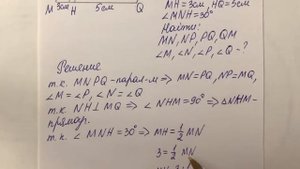 M 3см H 5см Q
MH = 3см, HQ = 5см
∠MNH = 30°
Найти:
MN, NP, PQ, QM
∠M, ∠N, ∠P, ∠Q - ?
Решение
т.к. MNPQ - парал-м ⇒ MN = PQ, NP = MQ,
∠M = ∠P, ∠N = ∠Q
т.к. NH ⊥ MQ ⇒ ∠NHM = 90° ⇒ △NHM -
прямоуг.
т.к. ∠MNH = 30° ⇒ MH = 1/2 MN
3 = 1/2 MN